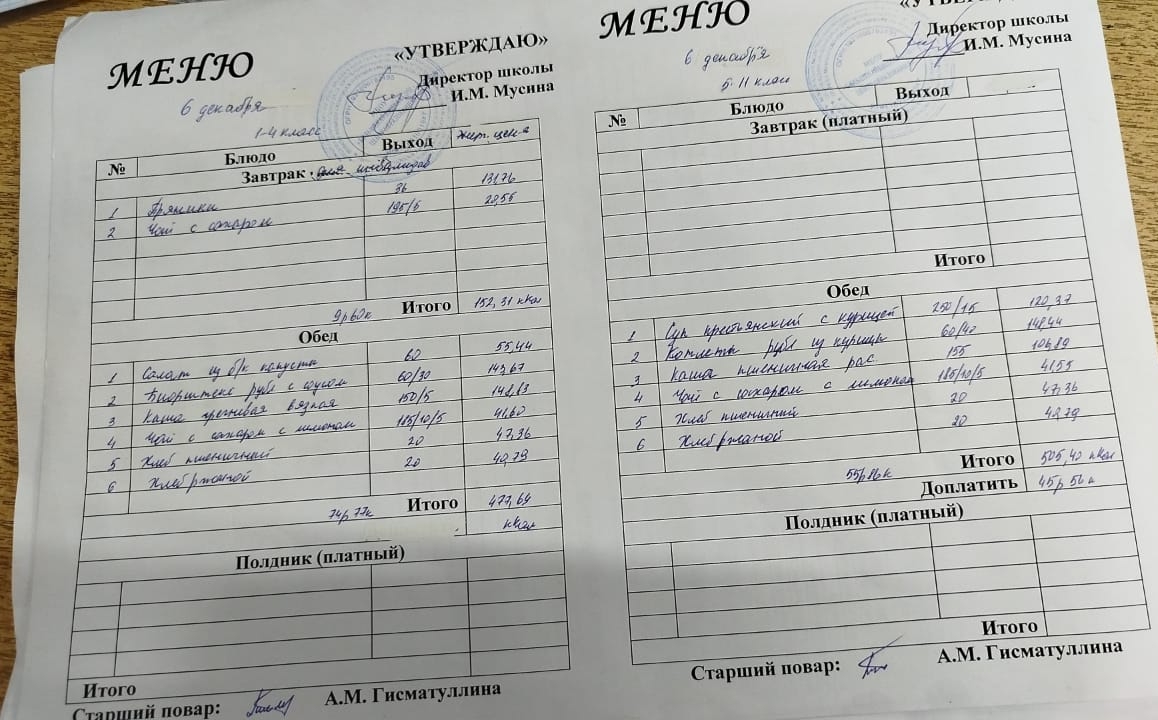 МЕНЮ
«УТВЕРЖДАЮ»
Директор школы
И.М. Мусина
6 декабря
1-4 класс
№ Блюдо Выход энер. цен-я
Завтрак для инвалидов
1 Пряники 36 131,76
2 Чай с сахаром 195/5 20,55
9р60к Итого 152,31 кКал
Обед
1 Салат из б/к капусты 60 55,44
2 Биоиштекс рубл с соусом 60/30 143,67
3 Каша гречневая вязкая 150/5 148,83
4 Чай с сахаром с лимоном 185/10/5 41,60
5 Хлеб пшеничный 20 47,36
6 Хлеб ржаной 20 40,79
74р77к Итого 477,69
кКал
Полдник (платный)
Итого
Старший повар: А.М. Гисматуллина
МЕНЮ
Директор школы
И.М. Мусина
6 декабря
5-11 класс
№ Блюдо Выход
Завтрак (платный)
Итого
Обед
1 Суп крестьянский с курицей 250/15 120,37
2 Котлеты рубл из курицы 60/40 148,44
3 Каша пшеничная рас. 155 106,89
4 Чай с сахаром с лимоном 185/10/5 41,55
5 Хлеб пшеничный 20 47,36
6 Хлеб ржаной 20 40,79
55р86к Итого 505,40 кКал
Доплатить 45р 56к
Полдник (платный)
Итого
Старший повар: А.М. Гисматуллина